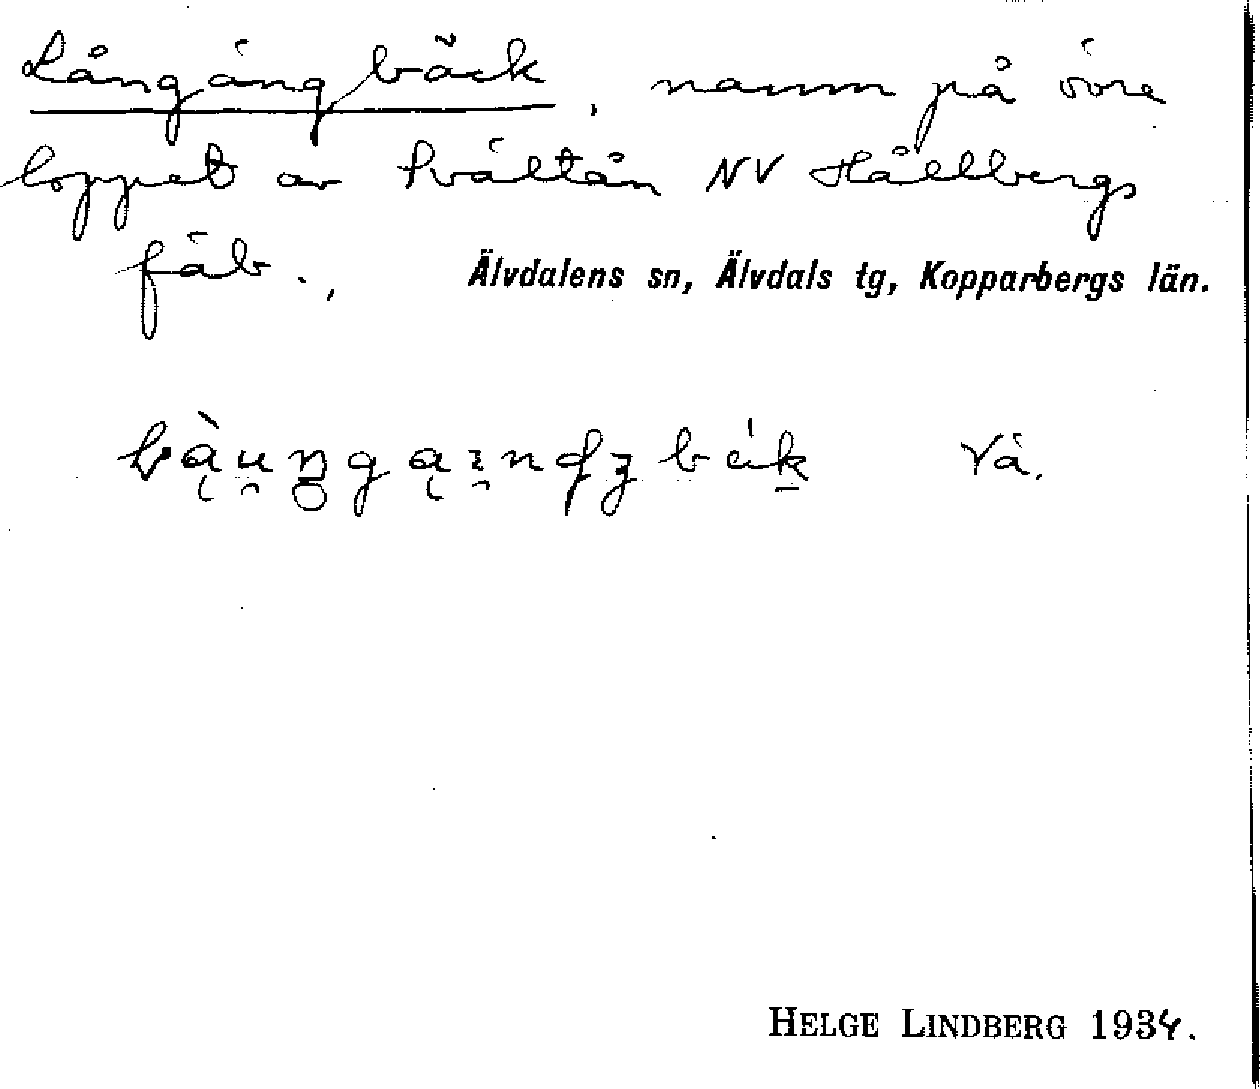 Långängbäck, namn på övre
loppet av Svältån NV Hållbergs
fäb., Älvdalens sn, Älvdals tg, Kopparbergs län.
Vå.
HELGE LINDBERG 1934.